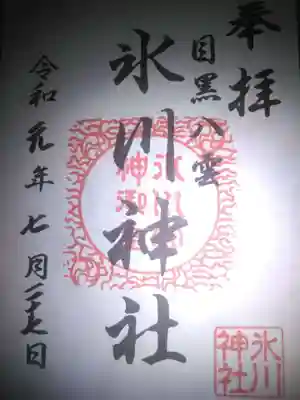 奉拝
目黒八雲
氷川神社
令和元年七月二十七日
氷川
神社